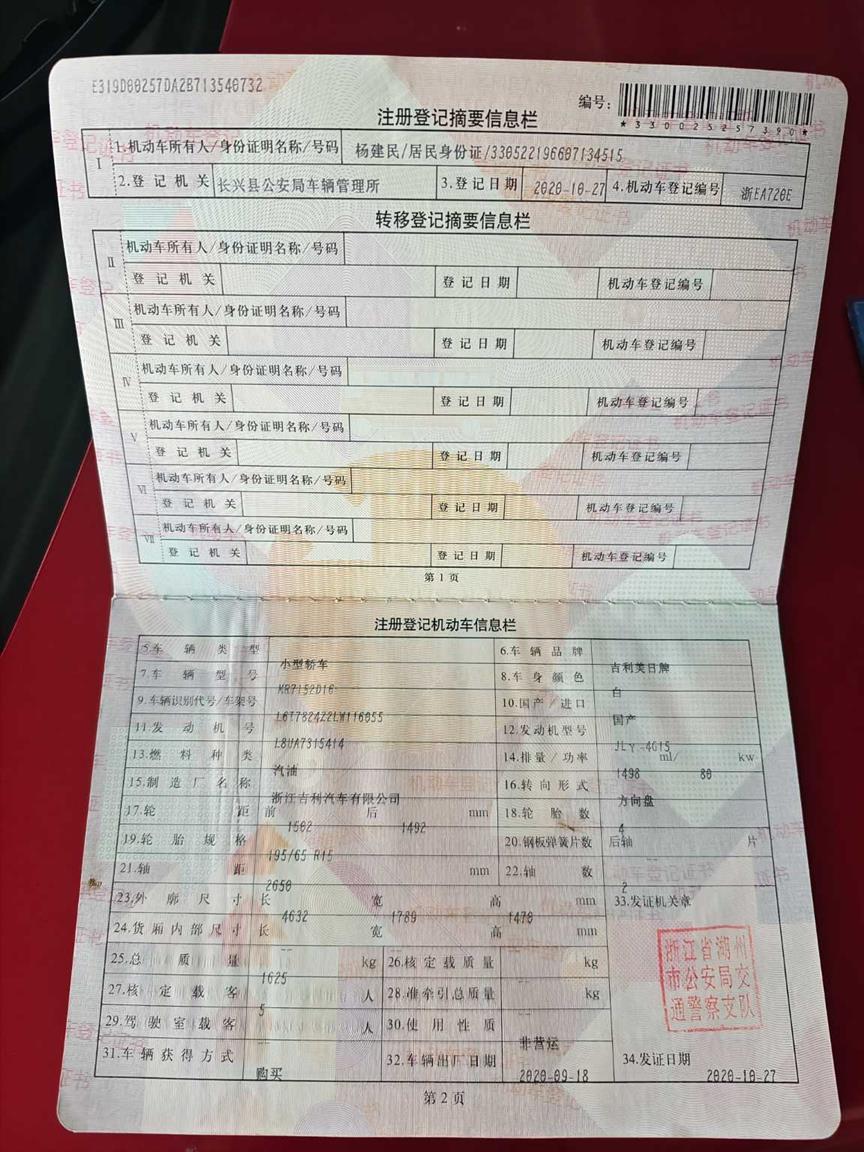 E319D00257DA2B713540732
编号：
*330025257390*
注册登记摘要信息栏
Ⅰ 1.机动车所有人/身份证明名称/号码 杨建民/居民身份证/330522196607134515
2.登记机关 长兴县公安局车辆管理所 3.登记日期 2020-10-27 4.机动车登记编号 浙EA720E
转移登记摘要信息栏
Ⅱ 机动车所有人/身份证明名称/号码
登记机关 登记日期 机动车登记编号
Ⅲ 机动车所有人/身份证明名称/号码
登记机关 登记日期 机动车登记编号
Ⅳ 机动车所有人/身份证明名称/号码
登记机关 登记日期 机动车登记编号
Ⅴ 机动车所有人/身份证明名称/号码
登记机关 登记日期 机动车登记编号
Ⅵ 机动车所有人/身份证明名称/号码
登记机关 登记日期 机动车登记编号
Ⅶ 机动车所有人/身份证明名称/号码
登记机关 登记日期 机动车登记编号
第1页
注册登记机动车信息栏
5.车辆类型 小型轿车 6.车辆品牌 吉利美日牌
7.车辆型号 MR7152D16 8.车身颜色 白
9.车辆识别代号/车架号 L6T7824Z2LW116055 10.国产/进口 国产
11.发动机号 L8UA7315414 12.发动机型号 JLY-4G15
13.燃料种类 汽油 14.排量/功率 1498 ml/ 80 kw
15.制造厂名称 浙江吉利汽车有限公司 16.转向形式 方向盘
17.轮距 前 1502 后 1492 mm 18.轮胎数 4
19.轮胎规格 195/65 R15 20.钢板弹簧片数 后轴 片
21.轴距 2650 mm 22.轴数 2
23.外廓尺寸 长 4632 宽 1789 高 1470 mm 33.发证机关章
24.货厢内部尺寸 长 -- 宽 -- 高 -- mm
浙江省湖州
市公安局交
通警察支队
25.总质量 1625 kg 26.核定载质量 -- kg
27.核定载客 5 人 28.准牵引总质量 -- kg
29.驾驶室载客 -- 人 30.使用性质 非营运
31.车辆获得方式 购买 32.车辆出厂日期 2020-09-18 34.发证日期 2020-10-27
第2页